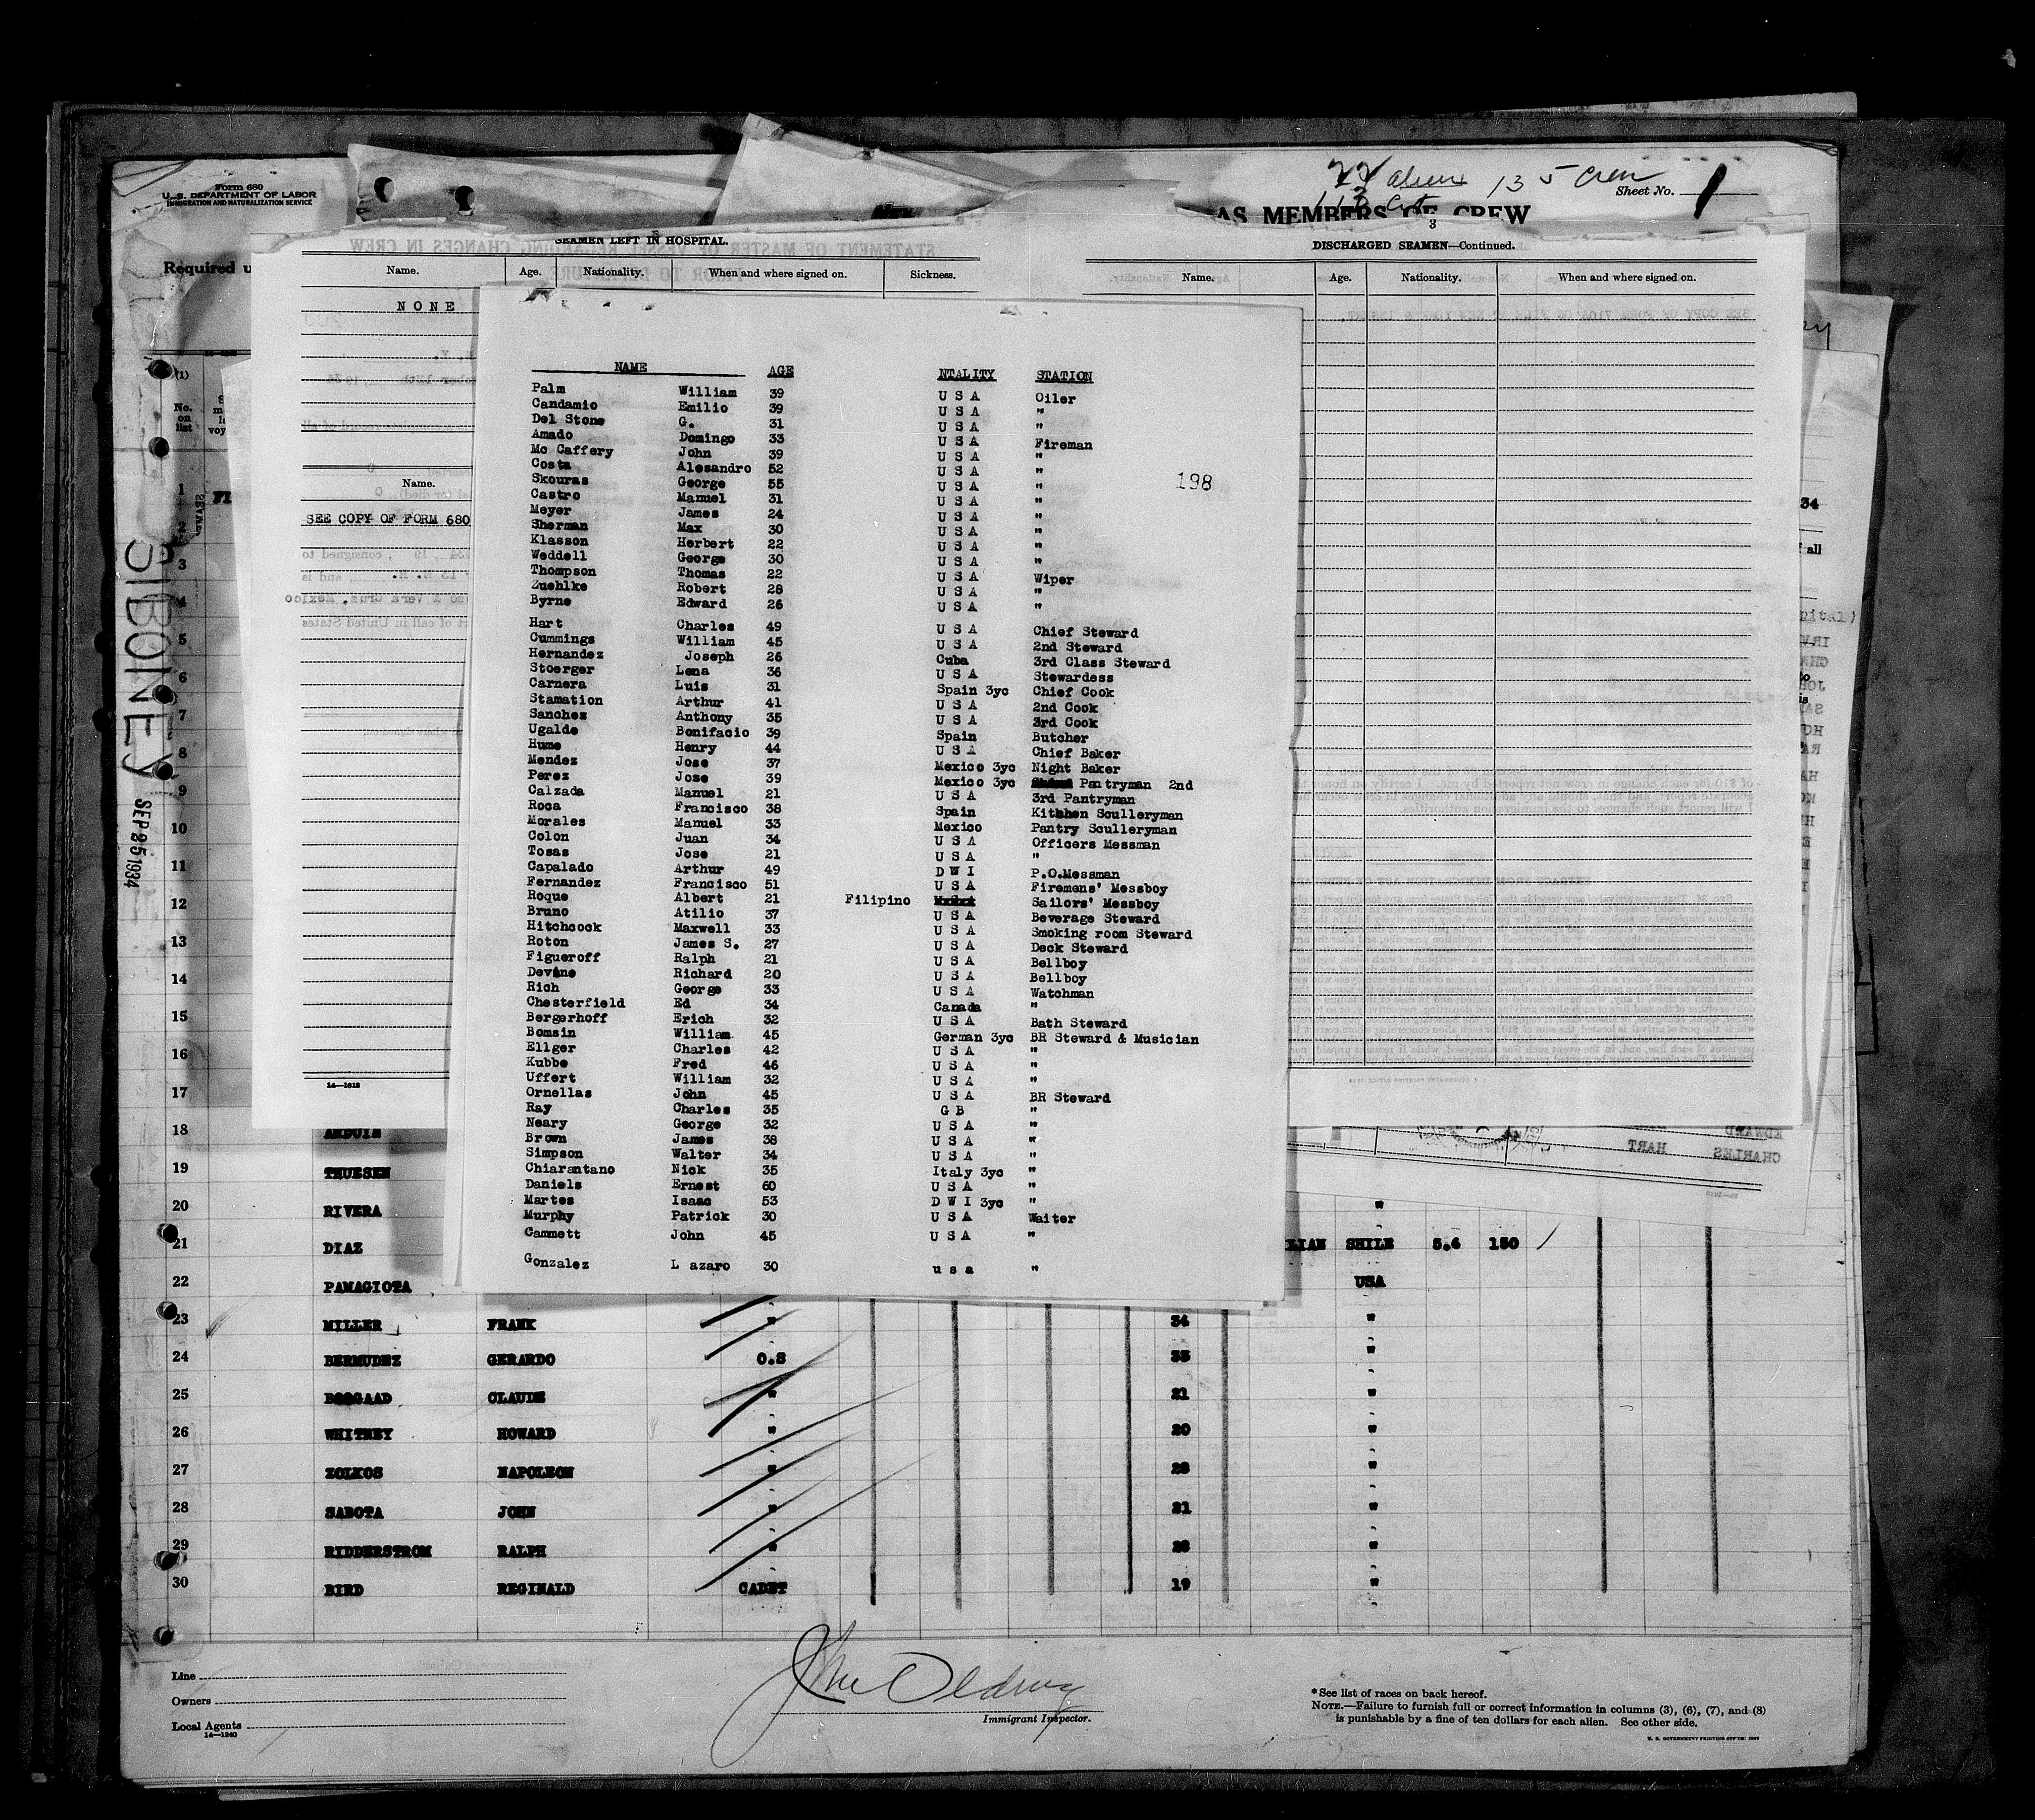 Form 680
U. S. DEPARTMENT OF LABOR
IMMIGRATION AND NATURALIZATION SERVICE
aliens 135 Crew
Sheet No. 1
AS MEMBERS OF CREW
Required u
3
SEAMEN LEFT IN HOSPITAL.
Name. Age. Nationality. When and where signed on. Sickness.
NONE
Name.
SEE COPY OF FORM 680
14—1618
DISCHARGED SEAMEN—Continued.
Name. Age. Nationality. When and where signed on.
(1)
No. on list
SIBONEY
SEP 25 1934
198
NAME AGE NTALITY STATION
Palm William 39 U S A Oiler
Candamio Emilio 39 U S A "
Del Stone G. 31 U S A "
Amado Domingo 33 U S A Fireman
Mc Caffery John 39 U S A "
Costa Alesandro 52 U S A "
Skouras George 55 U S A "
Castro Manuel 31 U S A "
Meyer James 24 U S A "
Sherman Max 30 U S A "
Klasson Herbert 22 U S A "
Weddell George 30 U S A "
Thompson Thomas 22 U S A Wiper
Zuehlke Robert 28 U S A "
Byrne Edward 26 U S A "
Hart Charles 49 U S A Chief Steward
Cummings William 45 U S A 2nd Steward
Hernandez Joseph 26 Cuba 3rd Class Steward
Stoerger Lena 36 U S A Stewardess
Carnera Luis 31 Spain 3yc Chief Cook
Stamation Arthur 41 U S A 2nd Cook
Sanchez Anthony 35 U S A 3rd Cook
Ugalde Bonifacio 39 Spain Butcher
Hume Henry 44 U S A Chief Baker
Mendez Jose 37 Mexico 3yc Night Baker
Perez Jose 39 Mexico 3yc Pantryman 2nd
Calzada Manuel 21 U S A 3rd Pantryman
Roca Francisco 38 Spain Kitchen Sculleryman
Morales Manuel 33 Mexico Pantry Sculleryman
Colon Juan 34 U S A Officers Messman
Tosas Jose 21 U S A "
Capalado Arthur 49 D W I P.O.Messman
Fernandez Francisco 51 U S A Firemens' Messboy
Roque Albert 21 Filipino Sailors' Messboy
Bruno Atilio 37 U S A Beverage Steward
Hitchcock Maxwell 33 U S A Smoking room Steward
Roton James S. 27 U S A Deck Steward
Figueroff Ralph 21 U S A Bellboy
Devine Richard 20 U S A Bellboy
Rich George 33 U S A Watchman
Chesterfield Ed 34 Canada "
Bergerhoff Erich 32 U S A Bath Steward
Bomsin William. 45 German 3yc BR Steward & Musician
Ellger Charles 42 U S A "
Kubbe Fred 46 U S A "
Uffert William 32 U S A "
Ornellas John 45 U S A BR Steward
Ray Charles 35 G B "
Neary George 32 U S A "
Brown James 38 U S A "
Simpson Walter 34 U S A "
Chiarantano Nick 35 Italy 3yc "
Daniels Ernest 60 U S A "
Martes Isaac 53 D W I 3yc "
Murphy Patrick 30 U S A Waiter
Cammett John 45 U S A "
Gonzalez L azaro 30 u s a "
34
1
2
3
4
5
6
7
8
9
10
11
12
13
14
15
16
17
18
19 THUESEN
20 RIVERA "
21 DIAZ LIAN SHILE 5.6 150
22 PAMAGIOTA USA
23 MILLER FRANK " 34 "
24 BERMUDEZ GERARDO O.S 33 "
25 BOOGAAD CLAUDE " 21 "
26 WHITNEY HOWARD " 20 "
27 ZOLKOS NAPOLEON " 28 "
28 SABOTA JOHN " 21 "
29 RIDDERSTROM RALPH " 28 "
30 BIRD REGINALD CADET 19 "
Line
Owners
Local Agents
14—1240
Immigrant Inspector.
* See list of races on back hereof.
NOTE.—Failure to furnish full or correct information in columns (3), (6), (7), and (8)
is punishable by a fine of ten dollars for each alien. See other side.